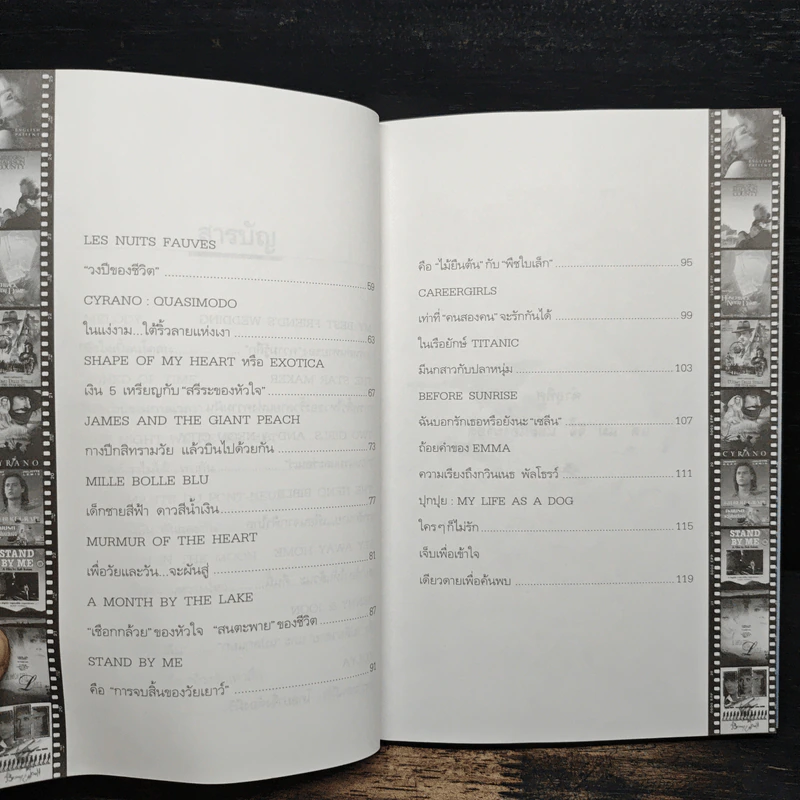 สารบัญ
LES NUITS FAUVES
"วงปีของชีวิต" 59
CYRANO : QUASIMODO
ในแง่งาม...ใต้ริ้วลายแห่งเงา 63
SHAPE OF MY HEART หรือ EXOTICA
เงิน 5 เหรียญกับ "สรีระของหัวใจ" 67
JAMES AND THE GIANT PEACH
กางปีกสิทรามวัย แล้วบินไปด้วยกัน 73
MILLE BOLLE BLU
เด็กชายสีฟ้า ดาวสีน้ำเงิน 77
MURMUR OF THE HEART
เพื่อวัยและวัน...จะผันสู่ 81
A MONTH BY THE LAKE
"เชือกกล้วย" ของหัวใจ "สนตะพาย" ของชีวิต 87
STAND BY ME 91
คือ "การจบสิ้นของวัยเยาว์"
คือ "ไม้ยืนต้น" กับ "พืชใบเล็ก" 95
CAREERGIRLS
เท่าที่ "คนสองคน" จะรักกันได้ 99
ในเรือยักษ์ TITANIC
มีนกสาวกับปลาหนุ่ม 103
BEFORE SUNRISE
ฉันบอกรักเธอหรือยังนะ "เซลีน" 107
ถ้อยคำของ EMMA
ความเรียงถึงกวินเนธ พัลโธรว์ 111
ปุกปุย : MY LIFE AS A DOG
ใครๆ ก็ไม่รัก 115
เจ็บเพื่อเข้าใจ
เดียวดายเพื่อค้นพบ 119
CYRANO
STAND
BY ME
CYRANO
STAND
BY ME